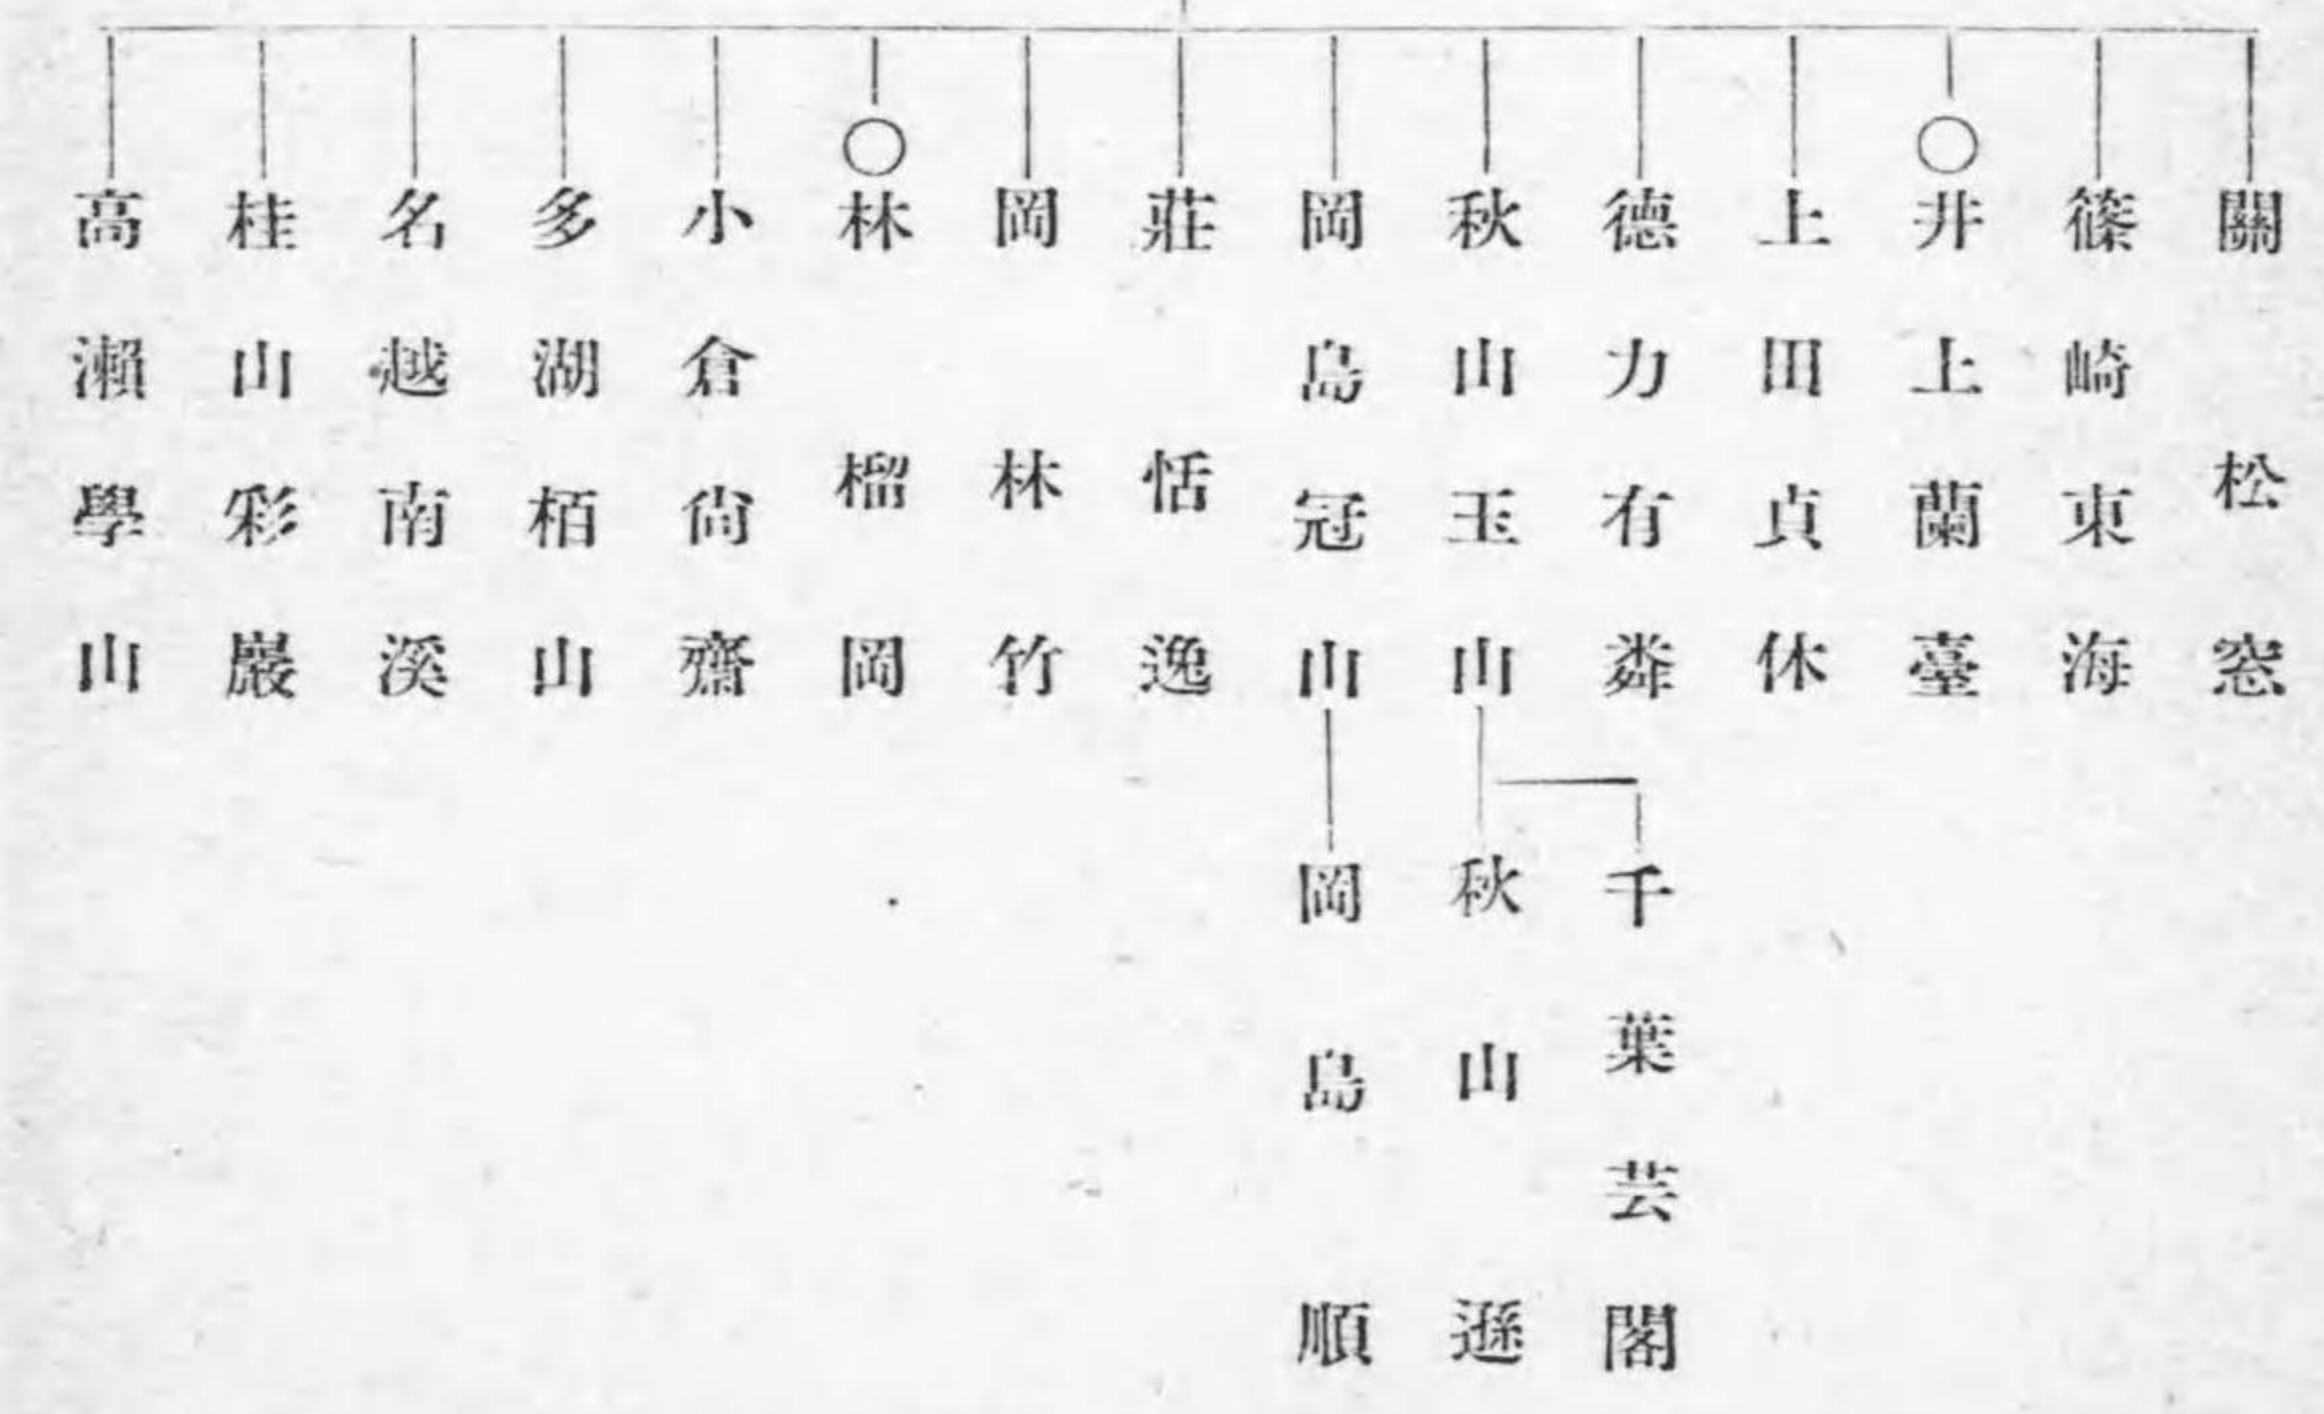 關松窓
篠崎東海
○井上蘭臺
上田貞休
德力有粦
千葉芸閣
秋山玉山
秋山遜
岡島冠山
岡島順
莊恬逸
岡林竹
○林榴岡
小倉尙齋
多湖栢山
名越南溪
桂山彩巖
高瀨學山